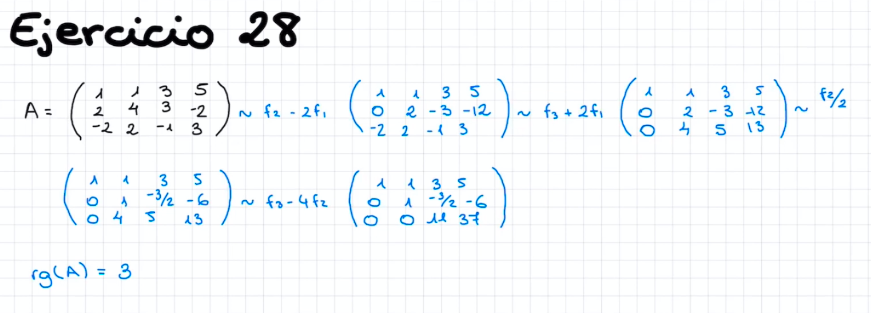 Ejercicio 28
A = ( 1 1 3 5 ; 2 4 3 -2 ; -2 2 -1 3 ) ~ f2 - 2f1 ( 1 1 3 5 ; 0 2 -3 -12 ; -2 2 -1 3 ) ~ f3 + 2f1 ( 1 1 3 5 ; 0 2 -3 -12 ; 0 4 5 13 ) ~ f2/2
( 1 1 3 5 ; 0 1 -3/2 -6 ; 0 4 5 13 ) ~ f3 - 4f2 ( 1 1 3 5 ; 0 1 -3/2 -6 ; 0 0 11 37 )
rg(A) = 3